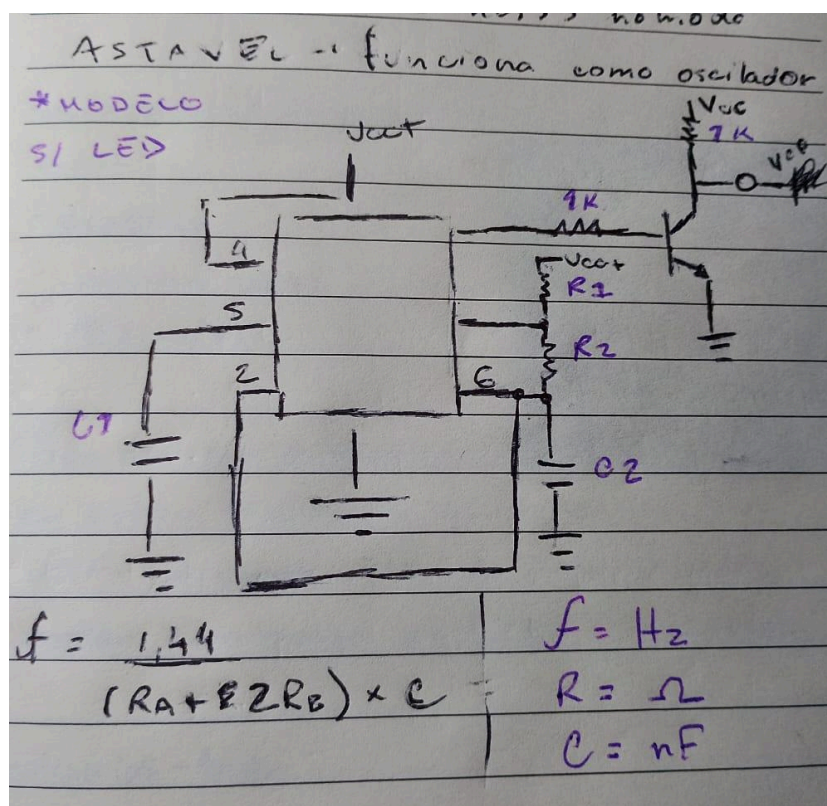 nomodo
ASTAVEL → funciona como oscilador
*MODELO
S/ LED
Vcc+
Vcc
1K
1K
4
Vcc+
R1
5
R2
2
6
C1
C2
f = 1,44
(RA + 2RB) × C
f = Hz
R = Ω
C = nF